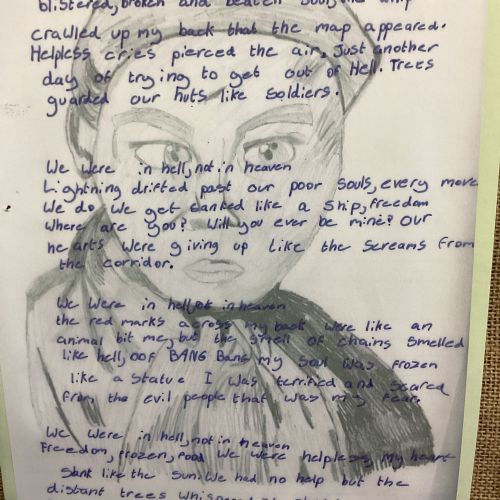 blistered, broken and beaten soul, the whip
crawled up my back that the map appeared.
Helpless cries pierced the air. Just another
day of trying to get out of Hell. Trees
guarded our huts like soldiers.
We were in hell, not in heaven
Lightning drifted past our poor souls, every move
we do we get tanked like a ship, freedom
where are you? Will you ever be mine? Our
hearts were giving up like the screams from
the corridor.
We were in hell, not in heaven
the red marks across my back were like an
animal bit me, but the smell of chains smelled
like hell, oof BANG Bang my soul was frozen
like a statue I was terrified and scared
from the evil people that was my fear.
We were in hell, not in heaven
Freedom, frozen, food we were helpless, my heart
sank like the sun. We had no help but the
distant trees